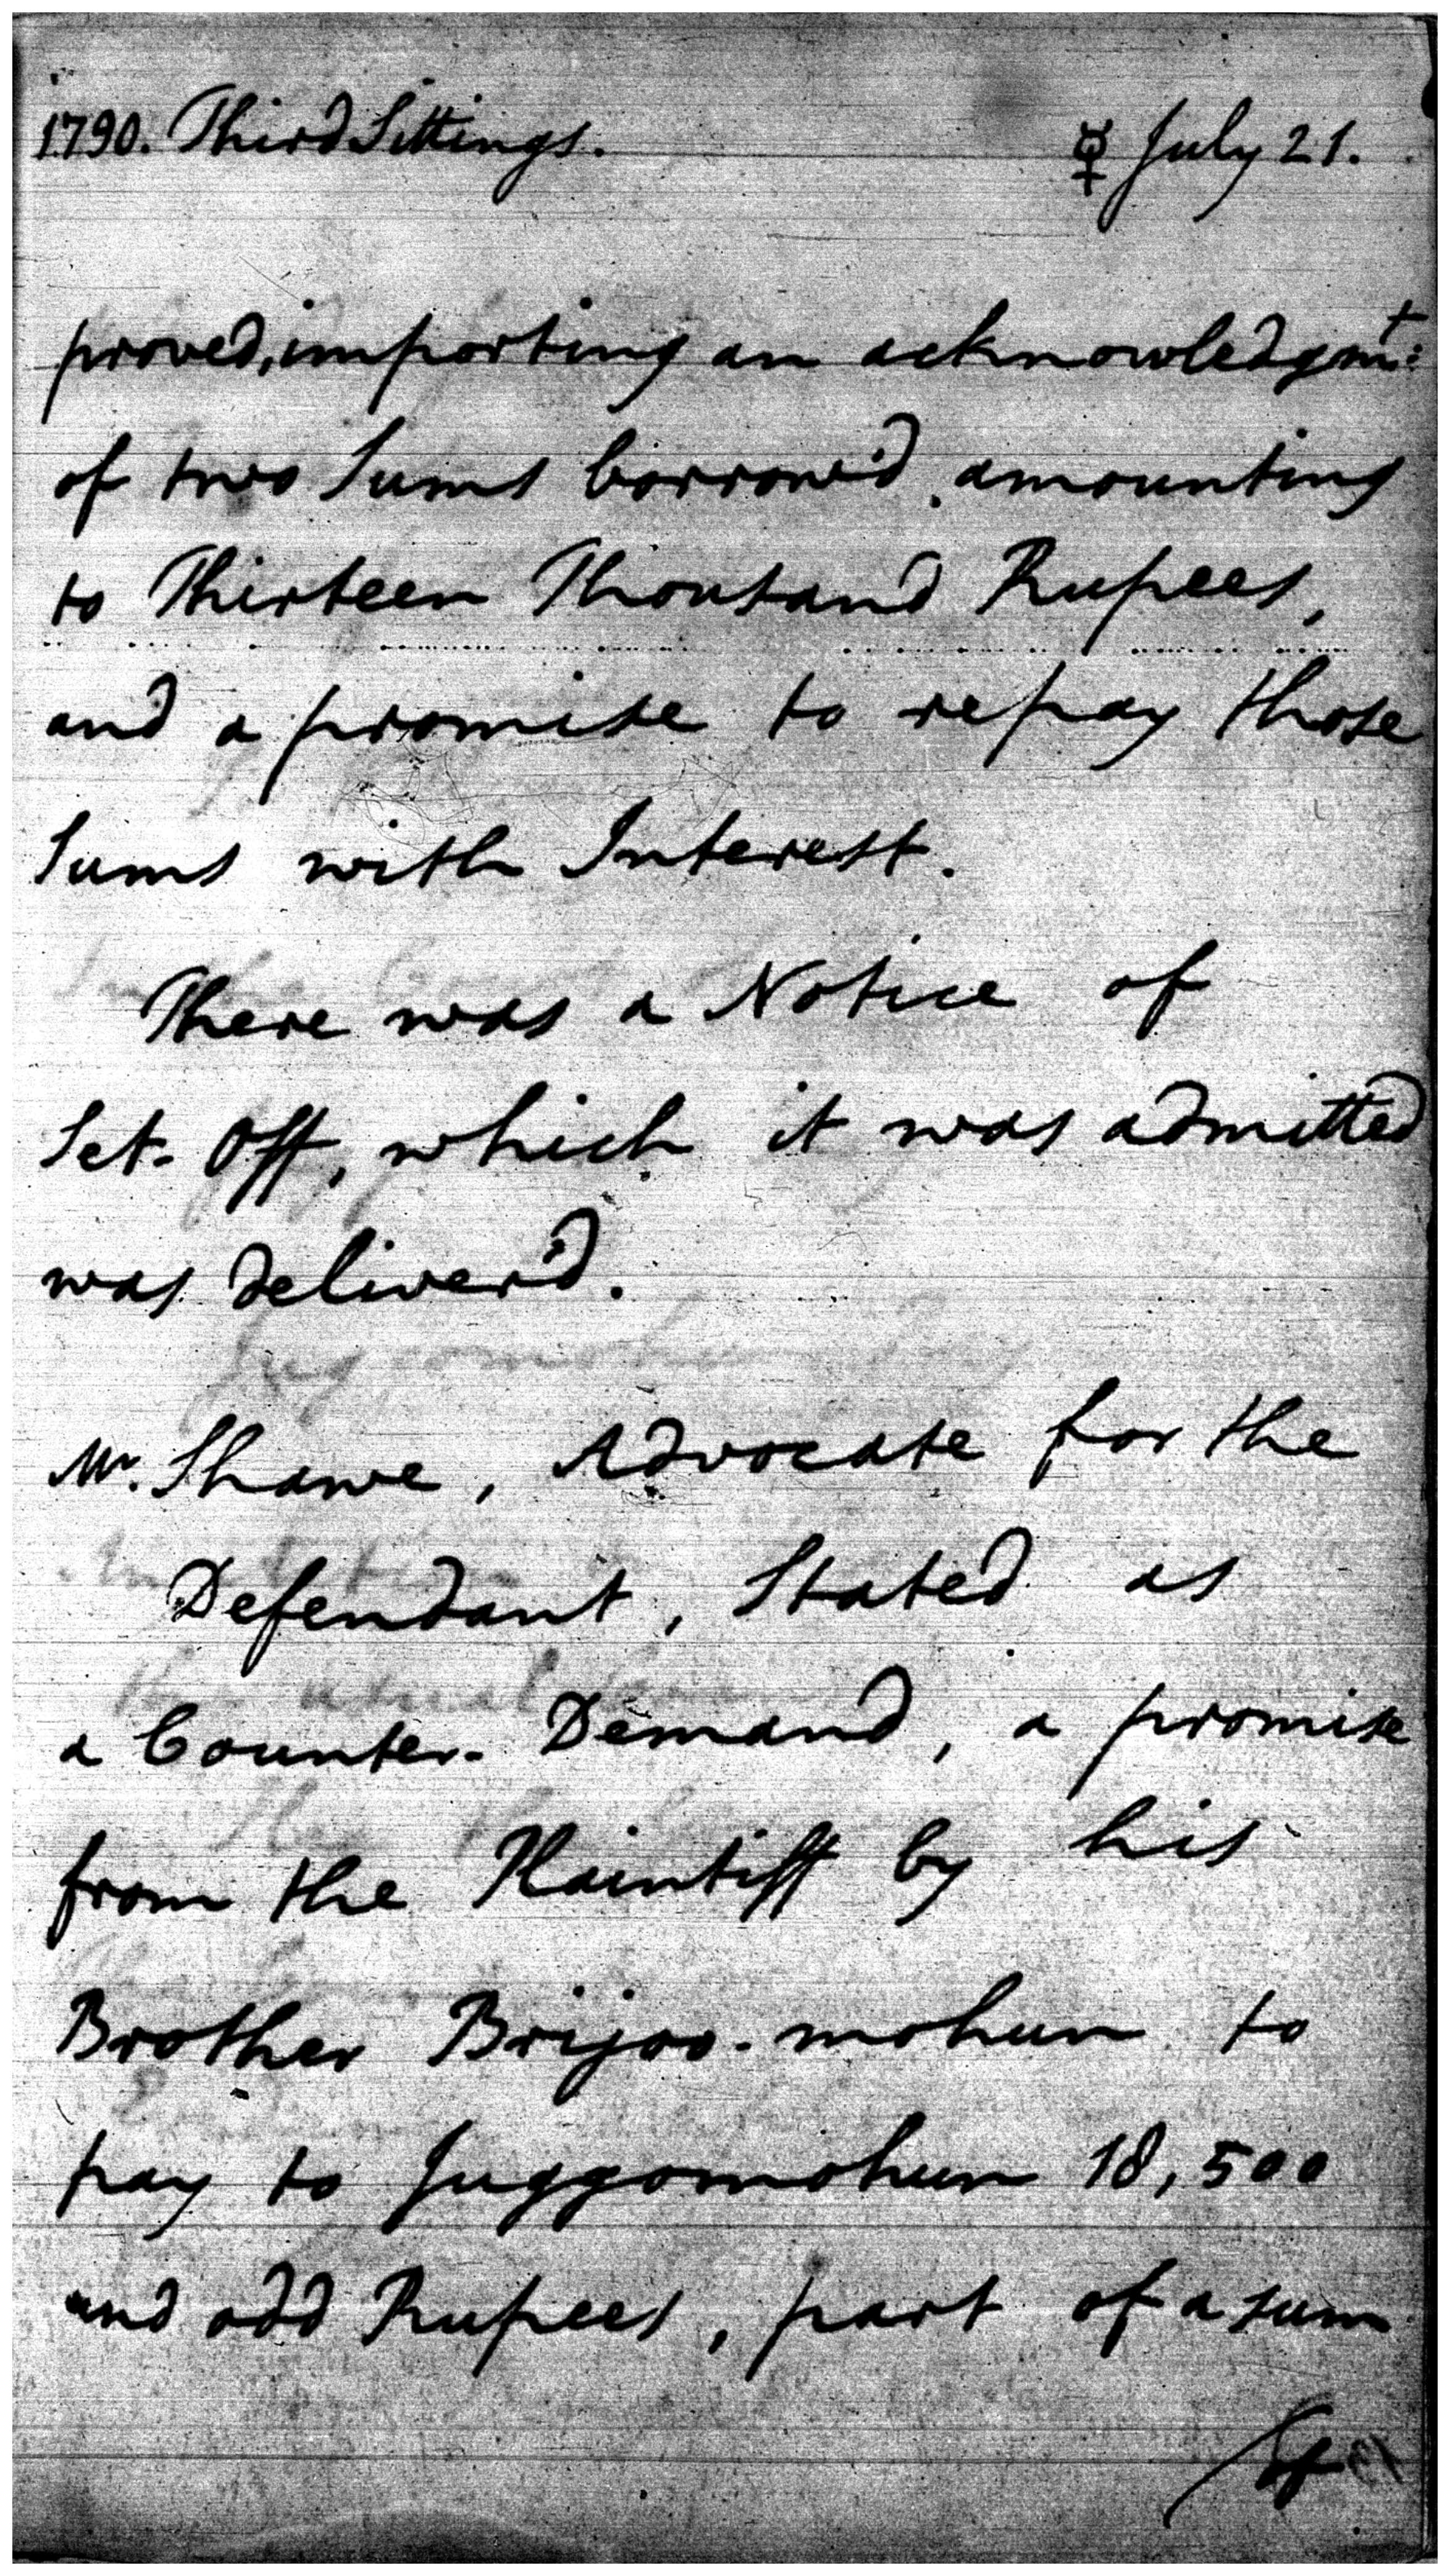 1790. Third Sittings. ☿ July 21.
proved, importing an acknowledgmt:
of two Sums borrow'd, amounting
to Thirteen Thousand Rupees,
and a promise to repay those
Sums with Interest.
There was a Notice of
Set-Off, which it was admitted
was deliver'd.
Mr. Shawe, Advocate for the
Defendant, Stated as
a Counter-Demand, a promise
from the Plaintiff by his
Brother Brijoo-mohun to
pay to Juggomohun 18,500
and odd Rupees, part of a sum
of